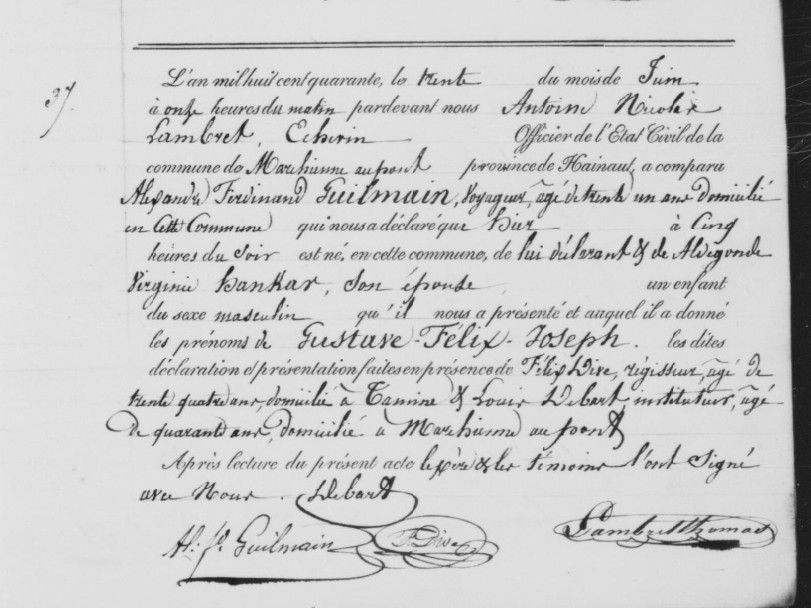 37.
L'an mil huit cent quarante, le trente du mois de Juin
à onze heures du matin pardevant nous Antoine Nicolas
Lambret, Echevin Officier de l'Etat Civil de la
commune de Marchienne au pont province de Hainaut, a comparu
Alexandre Ferdinand Guilmain, Voyageur, âgé de trente un ans domicilié
en Cette Commune qui nous a déclaré que hier à Cinq
heures du Soir est né, en cette commune, de lui déclarant & de Aldegonde
Virginie Hankar, Son épouse un enfant
du sexe masculin qu'il nous a présenté et auquel il a donné
les prénoms de Gustave-Félix-Joseph. les dites
déclaration et présentation faites en présence de Félix Dive, régisseur, âgé de
trente quatre ans, domicilié à Tamine & Louis Debart instituteur, âgé
de quarante ans, domicilié à Marchienne au pont
Après lecture du présent acte le père & les témoins l'ont Signé
avec Nous. Debart
Al: f. Guilmain F. Dive Lambret Thomas